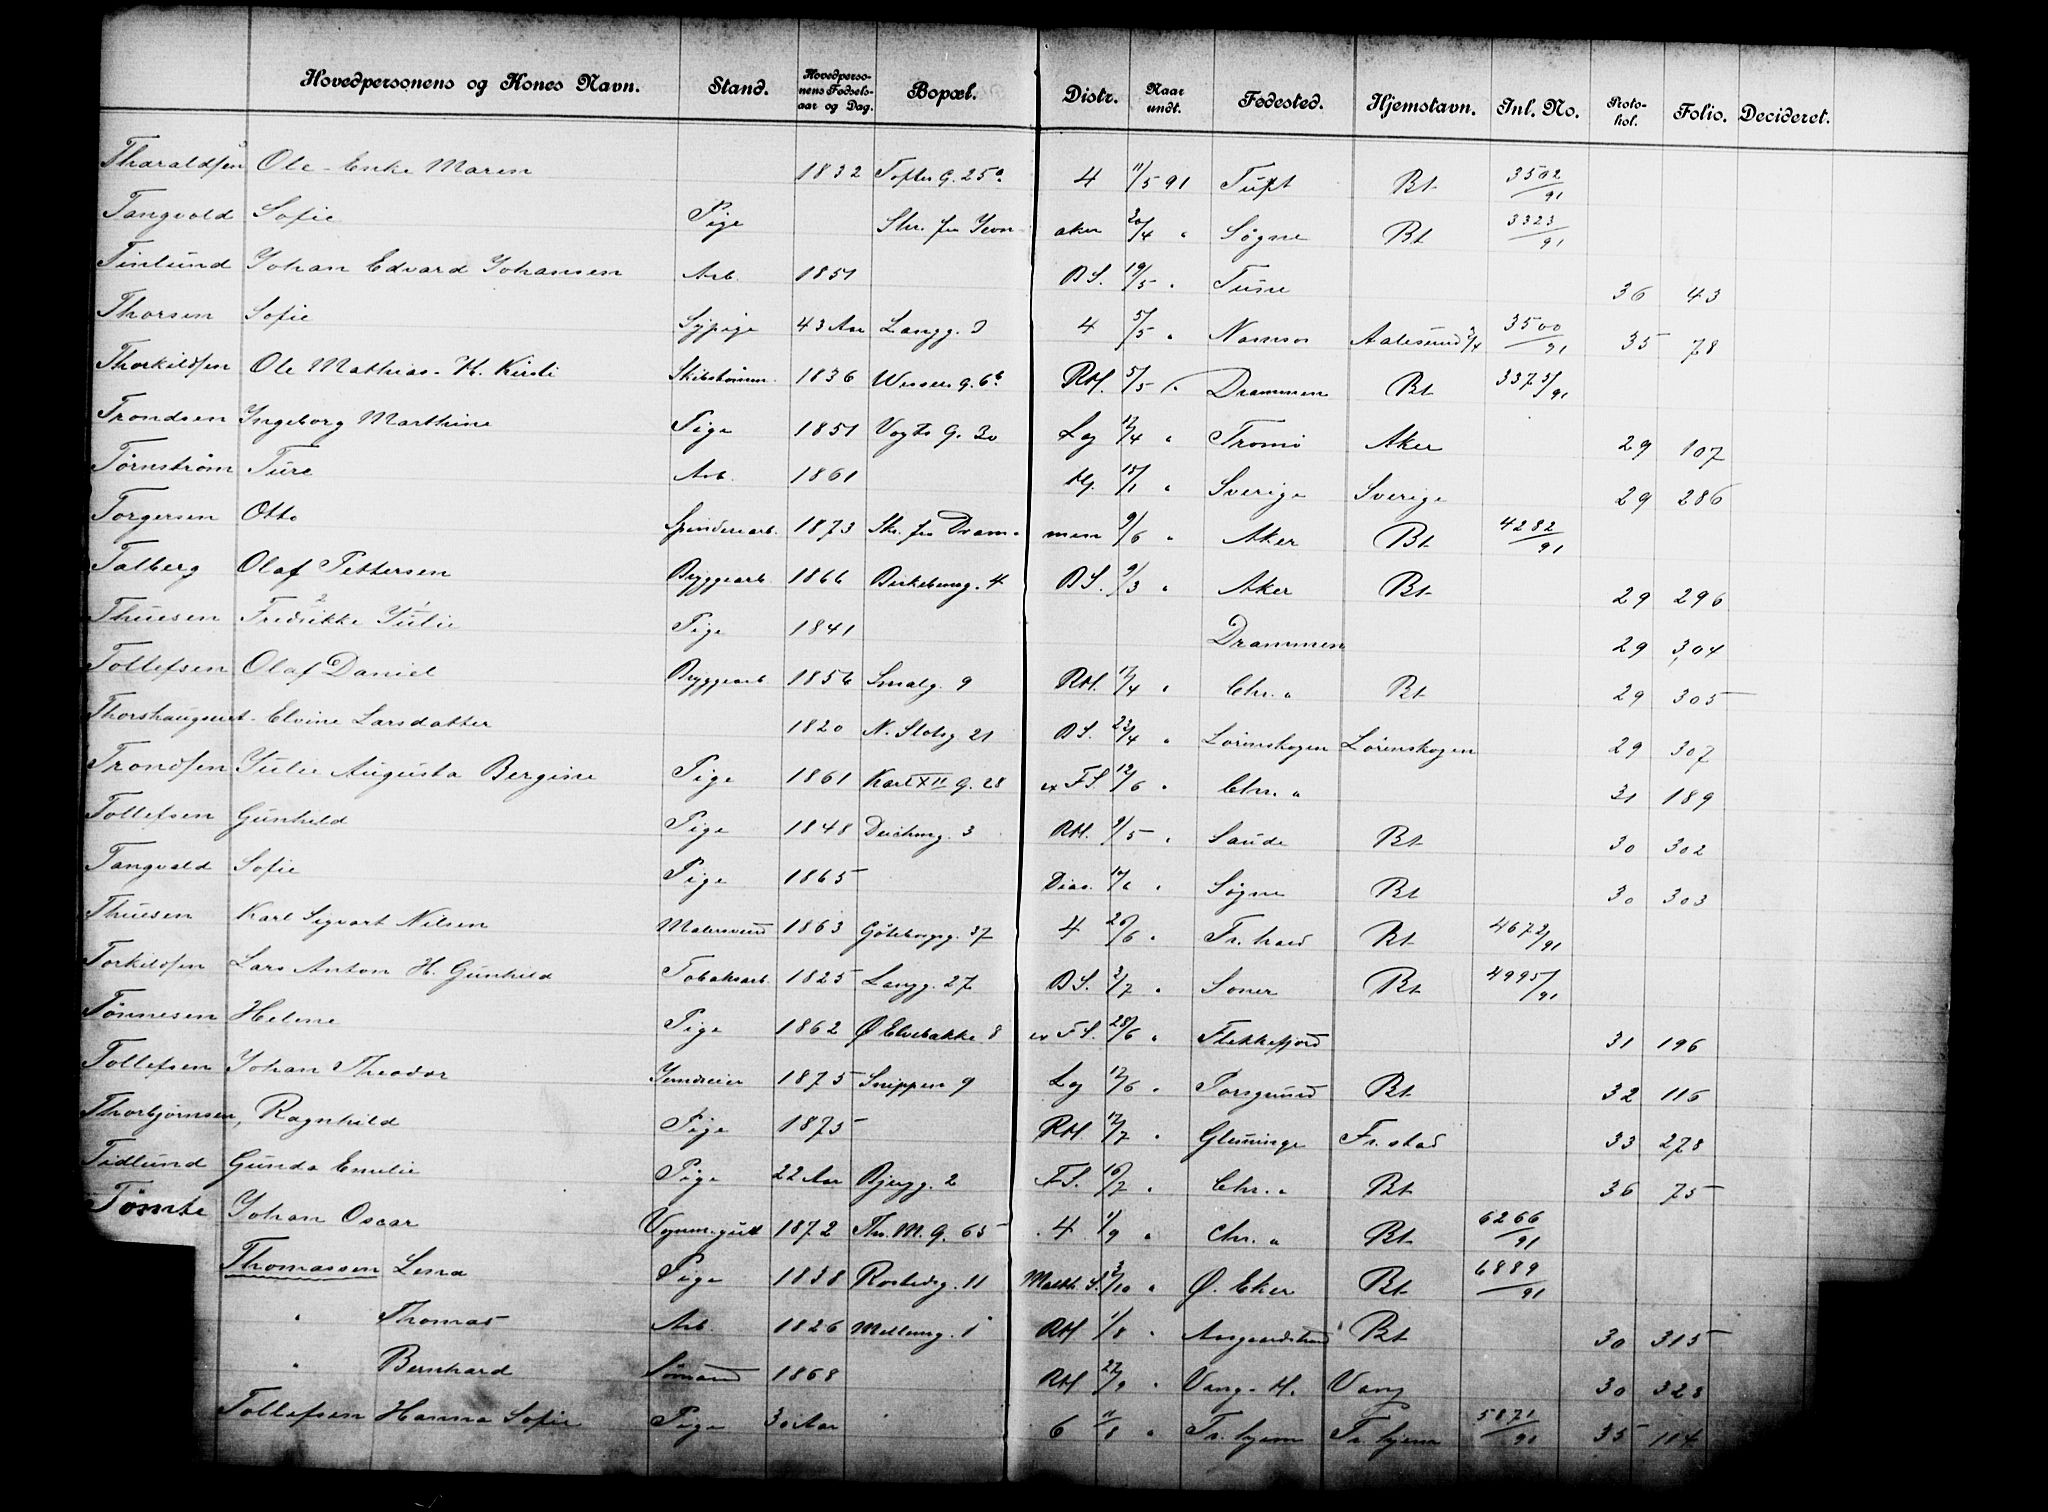 Hovedpersonens og Kones Navn. Stand. Hovedpersonens Fødselsaar og Dag. Bopæl. Distr. Naar undt. Fødested. Hjemstavn. Inl. No. Protokol. Folio. Decideret.
Tharaldsen Ole - Enke Maren 1832 Toftes G. 25a 4 11/5 91 Tuft Bt 3502/91
Tangvald Sofie Pige Skr. fra Jevnaker 30/4 " Søgne Bt 3323/91
Tinlund Johan Edvard Johansen Arb. 1851 BS. 19/5 " Tune 36 43
Thorsen Sofie Sypige 43 Aar Langg. 4 5/5 " Namsos Aalesund 3/4 3500/91 35 78
Thorkildsen Ole Mathias - H. Kirsti Skibstømm. 1836 Wessels g. 6b RH. 5/5 " Drammen Bt 3375/91
Trondsen Ingeborg Marthine Pige 1851 Vogts G. 30 Lg 12/4 " Tromø Aker 29 107
Törnström Ture Arb. 1861 Hj. 15/1 " Sverige Sverige 29 286
Torgersen Otto Spinderiarb. 1873 Skr. fra Drammen 9/6 " Aker Bt 4282/91
Talberg Olaf Pettersen Byggearb. 1866 Birkebeing. 4 BS. 9/3 " Aker Bt 29 296
Thuesen Fredrikke 2 Julie 1 Pige 1841 Drammen 29 304
Tollefsen Olaf Daniel Byggearb. 1856 Smalg. 9 RH. 17/4 " Chr. a Bt 29 305
Thorshaugseret - Elvine Larsdatter 1820 N. Slotsg 21 BS. 23/4 " Lørenskogen Lørenskogen 29 307
Trondsen Julie Augusta Bergine Pige 1861 Karl XII G. 28 ex FS. 12/6 " Chr. a 31 189
Tollefsen Gunhild Pige 1848 Deichmg. 3 RH. 9/5 " Saude Bt 30 302
Tangvald Sofie Pige 1865 Diac. Søgne Bt 30 303
Thuesen Karl Sigvart Nilsen Malersvend 1863 Göteborgg. 37 4 20/6 " Fr.hald Bt 4672/91
Torkildsen Lars Anton H. Gunhild Tobaksarb. 1825 Langg. 27 BS. 2/7 " Soner Bt 4995/91
Tønnesen Helene Pige 1862 Ø Elvebakke 8 ex FS. 28/6 " Flekkefjord 31 196
Tollefsen Johan Theodor Jerndreier 1875 Snippen 9 Lg 12/6 " Porsgrund Bt 32 116
Thorbjørnsen, Ragnhild Pige 1875 RH 17/7 " Glemminge Fr.stad 33 278
Tidlund Gunda Emilie Pige 22 Aar Bjergg. 2 FS. 16/7 " Chr. a Bt 36 75
Tømte Johan Oscar Vognm.gutt 1872 Th. M. G. 65 4 1/9 " Chr. a Bt 6266/91
Thomassen Lena Pige 1838 Rostedsg. 11 Malth. S. 3/10 " Ø. Eker Bt 6889/91
" Thomas Arb. 1826 Mellemg. 1 RH 1/8 " Aasgaardstrand Bt 30 315
" Bernhard Sømand 1868 RH 22/9 " Vang - H. Vang 30 323
Tollefsen Hanna Sofie Pige 30 Aar 6 11/8 " Tr.hjem Tr.hjem 5871/91 35 114